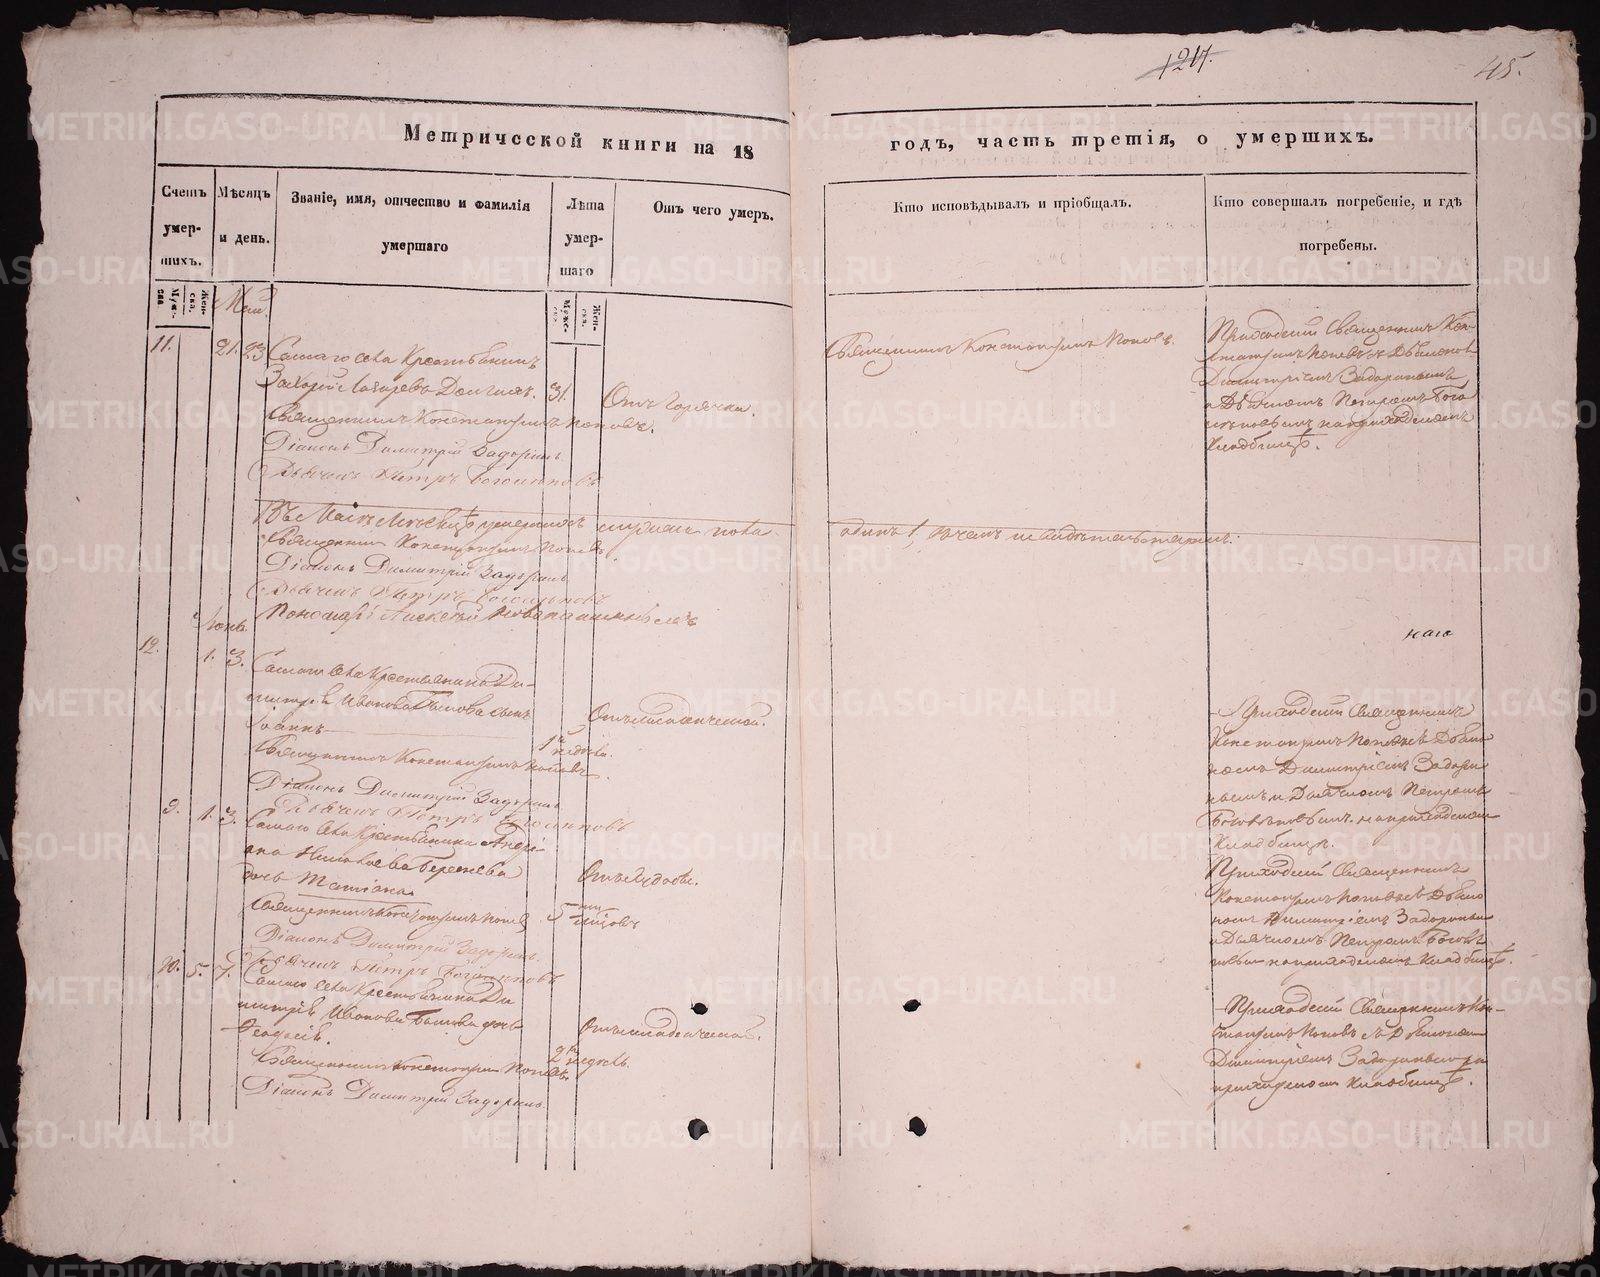 1217.
45.
Метрической книги на 18
годъ, часть третія, о умершихъ.
Счетъ умер-шихъ.
Мужеска.
Женска.
Мѣсяцъ и день.
Званіе, имя, отчество и фамилія умершаго
Лѣта умер-шаго
Мужеска.
Женска.
Отъ чего умеръ.
Кто исповѣдывалъ и пріобщалъ.
Кто совершалъ погребеніе, и гдѣ погребены.
Маій
11.
21. 23
Самаго села Крестьянинъ
Захарій Лазаревъ
31.
Отъ Горячки.
Священникъ Константинъ Поповъ.
Діаконъ Димитрій Задоринъ
Дьячекъ Петръ
Священникъ Константинъ Поповъ.
Приходскій Священникъ Кон-
стантинъ Поповъ съ Діакономъ
Димитріемъ Задоринымъ
и Дьячкомъ Петромъ Бого
на приходскомъ
Кладбищѣ.
Въ Маіѣ Мѣсяцѣ умершихъ мужеска пола
одинъ 1, въ чемъ и свидѣтельствуемъ:
Священникъ Константинъ Поповъ
Діаконъ Димитрій Задоринъ
Дьячекъ Петръ
Пономарь Алексѣй
Іюнь.
12.
1. 3.
Самаго села Крестьянина Ди-
митрія Иванова сынъ
Іоаннъ
1 недѣли.
Отъ младенческой.
Священникъ Константинъ Поповъ.
Діаконъ Димитрій Задоринъ
Дьячекъ Петръ
наго
Приходскій Священникъ
Константинъ Поповъ съ Діако
номъ Димитріемъ Задори
нымъ и Дьячкомъ Петромъ
на приходскомъ
Кладбищѣ.
9.
1. 3.
Самаго села Крестьянина Андрі-
ана Николаева
дочь Татіана.
5 мѣсяцовъ
Священникъ Константинъ Поповъ
Діаконъ Димитрій Задоринъ
Дьячекъ Петръ
Приходскій Священникъ
Константинъ Поповъ съ Діако
номъ Димитріемъ Задоринымъ
и Дьячкомъ Петромъ
на приходскомъ Кладбищѣ.
10.
5. 7.
Самаго села Крестьянина Ди
митрія Иванова дочь
2 недѣль.
Отъ младенческой.
Священникъ Константинъ Поповъ.
Діаконъ Димитрій Задоринъ.
Приходскій Священникъ Кон-
стантинъ Поповъ съ Діакономъ
Димитріемъ Задоринымъ на
приходскомъ Кладбищѣ.
METRIKI.GASO-URAL.RU